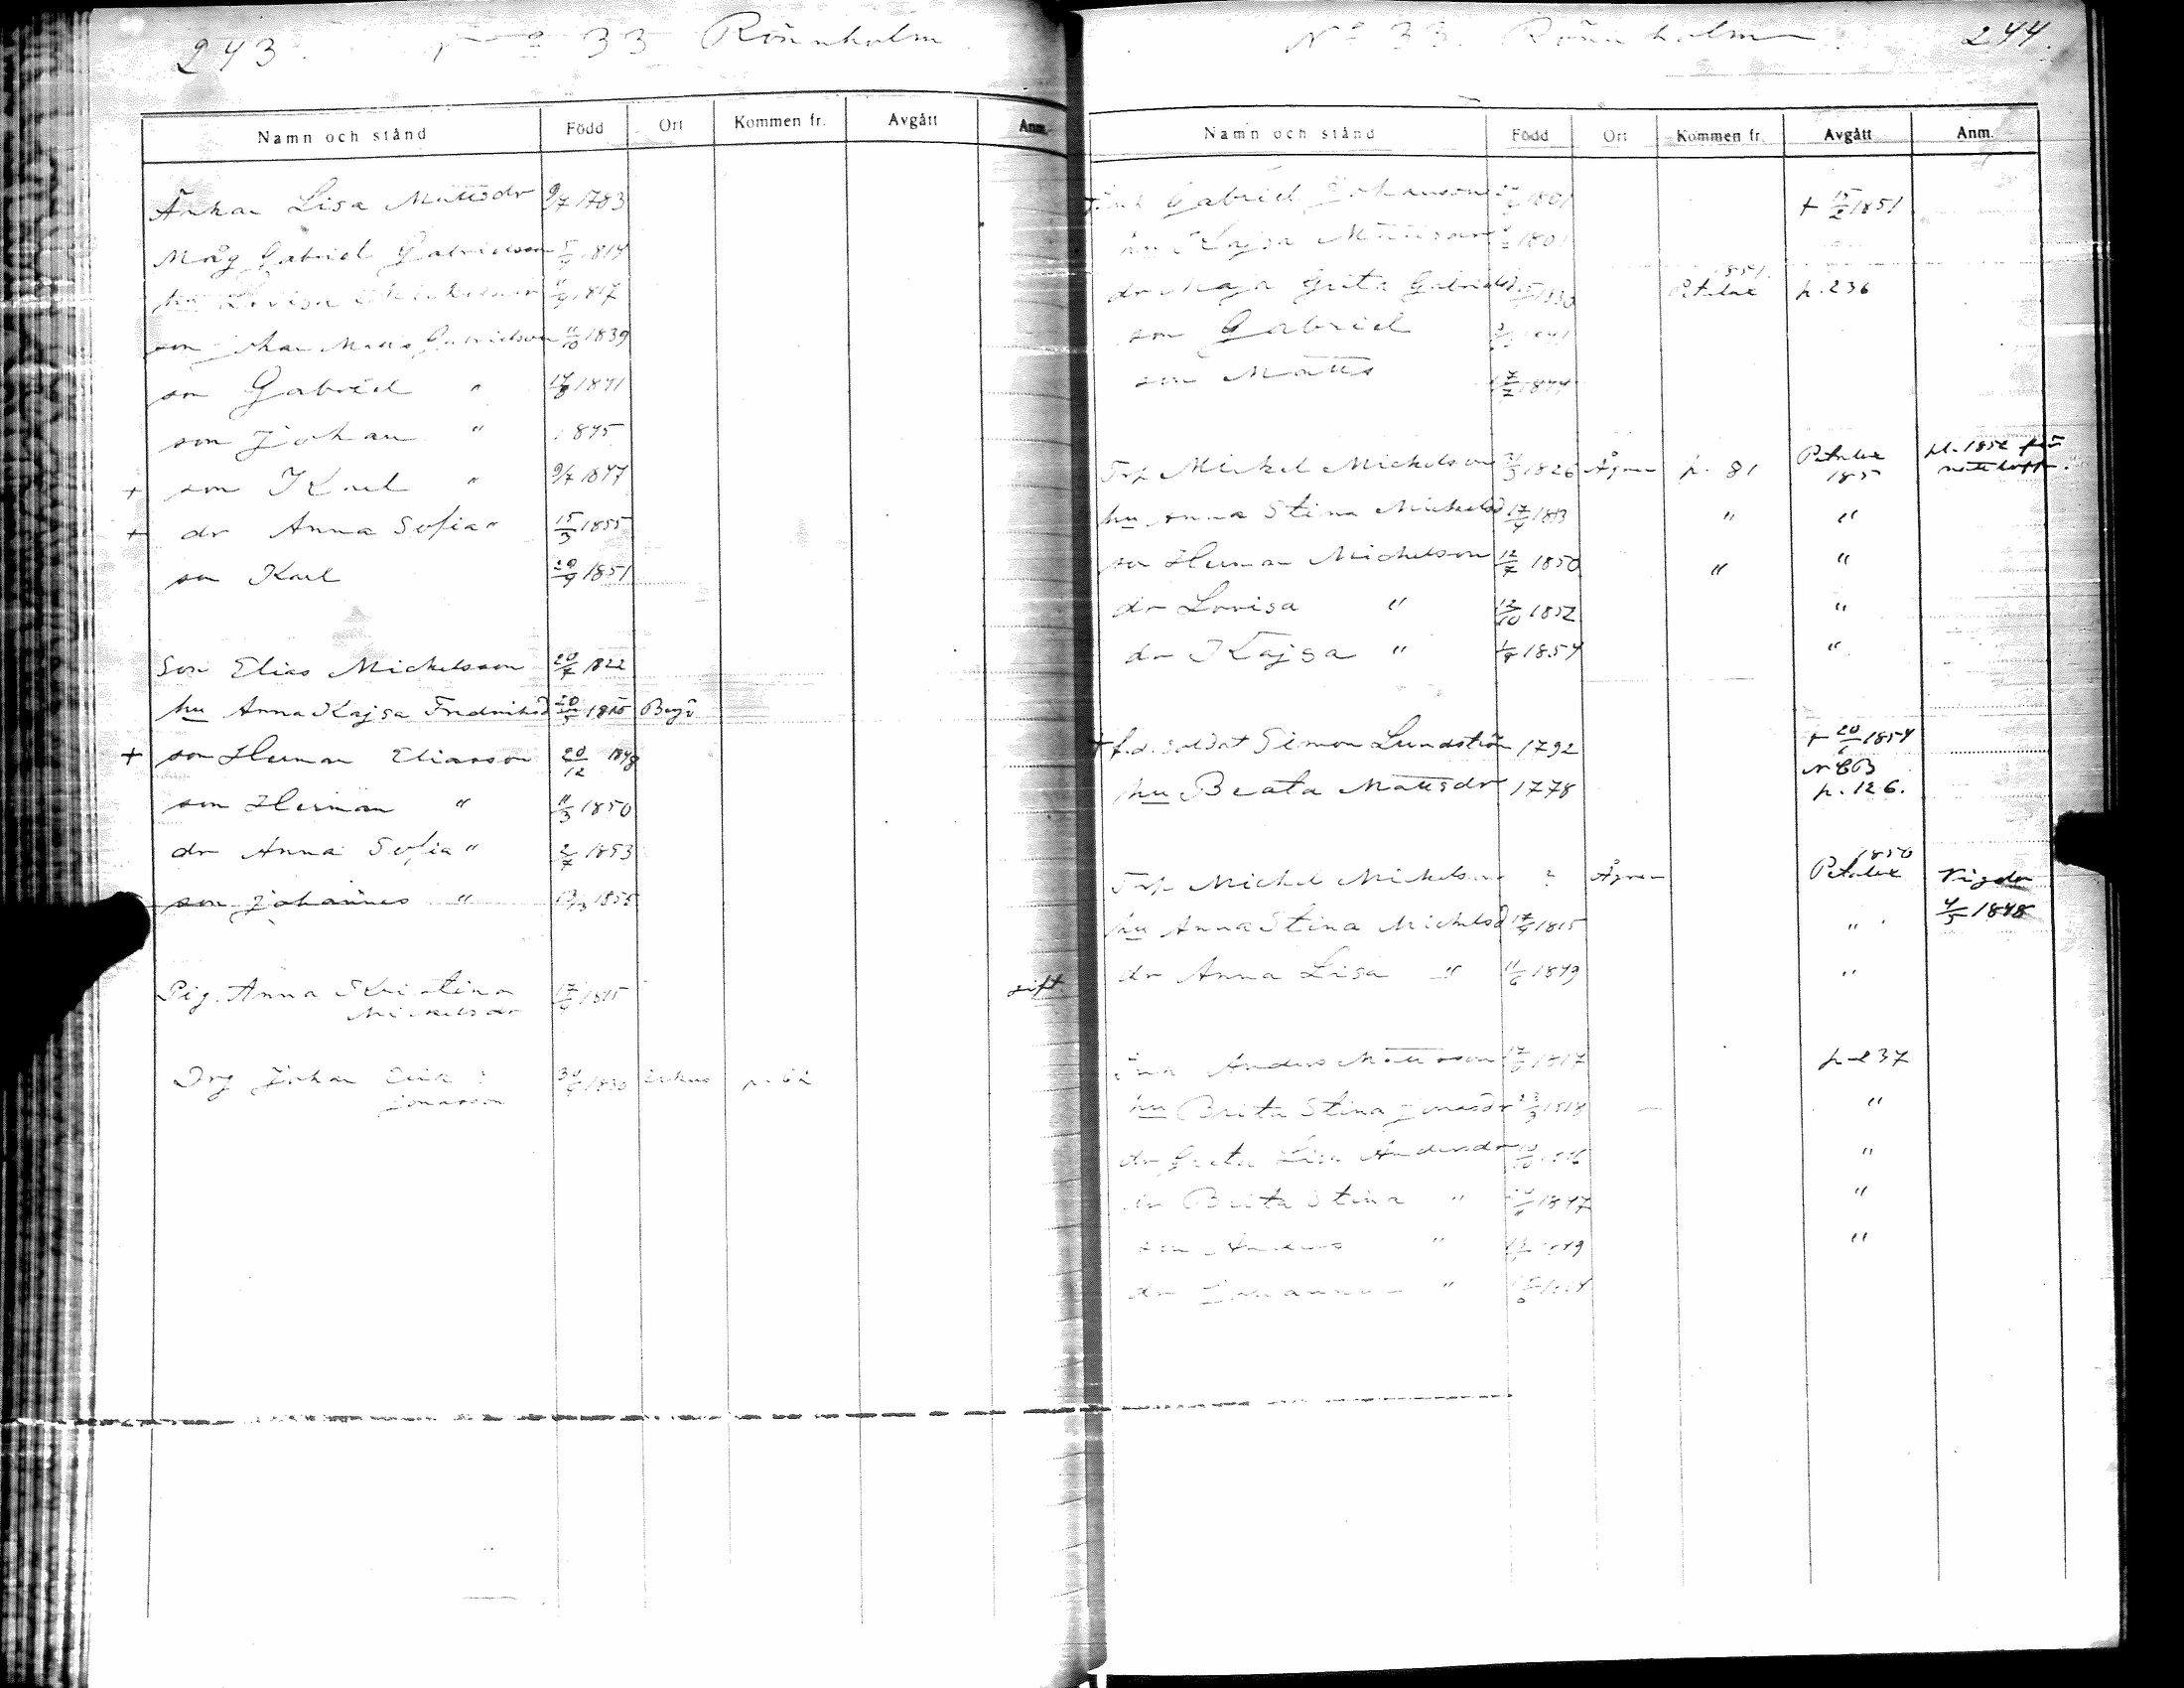 243. No 33 Rönnholm
Namn och stånd Född Ort Kommen fr. Avgått Anm.
Änkan Lisa Mattsdr 9/7 1783
Måg Gabriel Gabrielsson 5/9 1814
hu Lovisa Mickelsdr 11/9 1817
son Johan Matts Gabrielsson 11/10 1839
son Gabriel " 14/8 1841
son Johan " 1845
+ son Karl " 9/7 1847
+ dr Anna Sofia " 15/3 1855
son Karl 20/9 1851
Son Elias Mickelsson 20/7 1822
hu Anna Kajsa Fredriksd 20/5 1815 Bergö
+ son Herman Eliasson 20/12 1848
son Herman " 11/3 1850
dr Anna Sofia " 2/7 1853
son Johannes " 13/3 1855
Pig. Anna Kristina 17/9 1815 gift
Mickelsdr
Drg Johan Erik 30/9 1830 p. 62
Jonasson
No 33. Rönnholm 244.
Namn och stånd Född Ort Kommen fr. Avgått Anm.
+ Inh Gabriel Johansson 1801 + 15/2 1851
hu Kajsa Mattsdr 1801
1851
dr Maja Greta Gabrielsd 1830 Petalax p. 236
son Gabriel 1841
son Matts 7/2 1844
Torp Mickel Mickelsson 3 1826 Ågren p. 81 Petalax 185 pl. 1852 för
hu Anna Stina Mickelsd 17/9 1813 " "
son Herman Mickelsson 12/7 1850 " "
dr Lovisa " 12/10 1852 "
dr Kajsa " 1854 "
+ f.d. soldat Simon Lundström 1792 + 20/6 1854
NCB
hu Beata Mattsdr 1778 p. 126.
1850
Torp Mickel Mickelsson ? Ågren Petalax Vigda
4/5 1848
hu Anna Stina Mickelsd 17/9 1815 "
dr Anna Lisa " 11/6 1849 "
Inh Anders Mattsson 17/6 1817 p 237
hu Brita Stina Jonasdr 23/3 1818 "
dr Greta Lisa Andersdr "
dr Brita Stina " 1847 "
son Anders " 1849 "
dr Johanna "